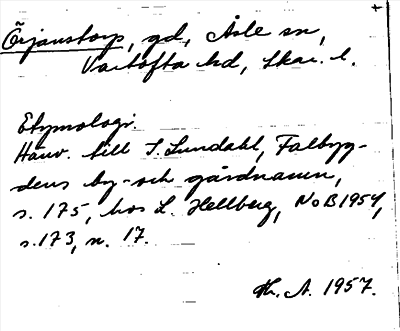 Örjanstorp, gd, Åsle sn,
Vartofta hd, Skar. l.
Etymologi.
Hänv. till I. Lundahl, Falbyg-
dens by- och gårdnamn,
s. 175, hos L. Hellberg, NoB 1954,
s. 173, n. 17.
Th. A. 1957.